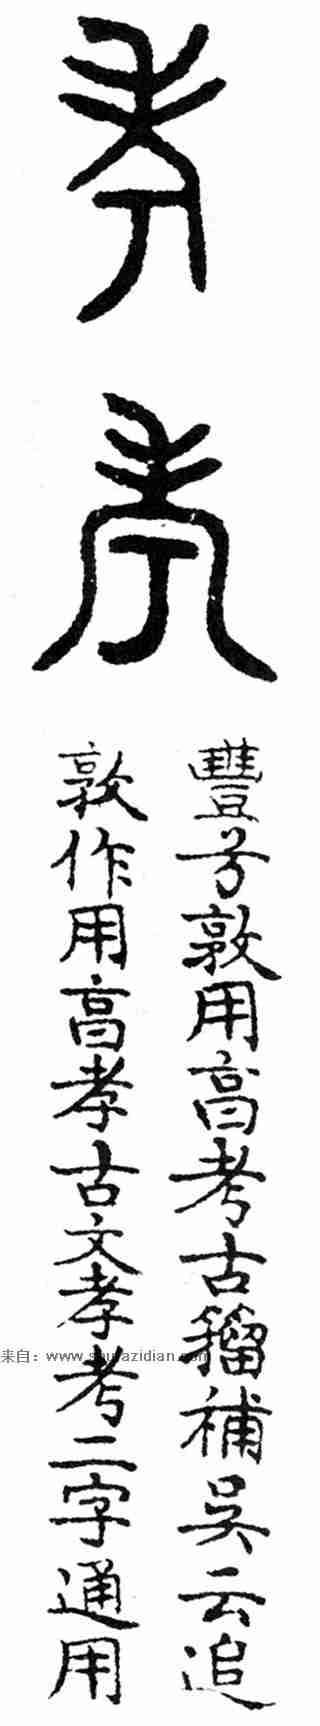 考
考
豐兮敦用亯考古籀補吳云追
敦作用亯孝古文孝考二字通用
来自：www.shufazidian.com